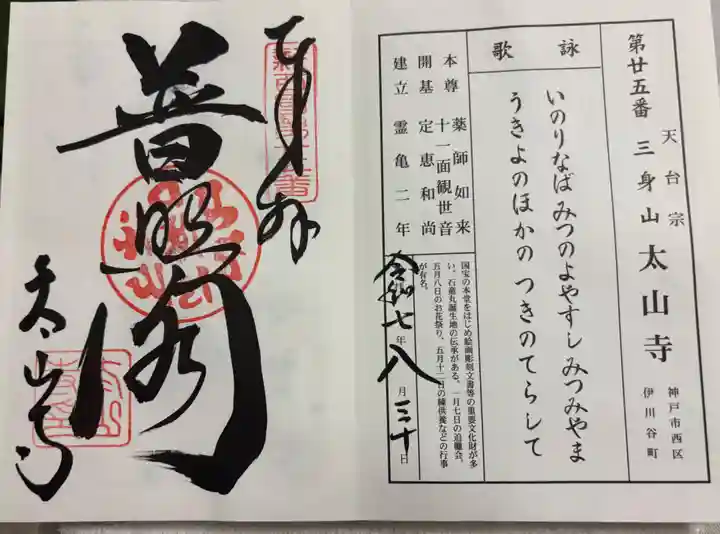 第廿五番
天台宗
三身山 太山寺
神戸市西区
伊川谷町
詠歌
いのりなば みつのよやすし みつみやま
うきよのほかの つきのてらして
本尊 薬師如来
十一面観世音
開基 定恵和尚
建立 霊亀二年
国宝の本堂をはじめ絵画彫刻文書等の重要文化財が多
い。石童丸誕生地の伝承がある。一月七日の追儺会、
五月八日のお花祭り、五月十二日の練供養などの行事
が有名。
令和七年八月三十日
奉拝
普照閣
太山寺